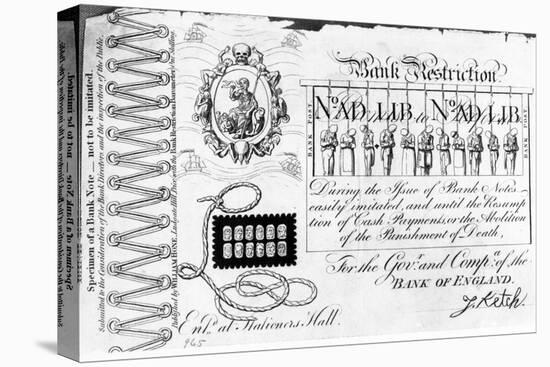 Bank Restriction
BANK POST
No. AD. LIB. No. AD. LIB.
BANK POST
During the Issue of Bank Notes
easily imitated, and until the Resump
tion of Cash Payments, or the Abolition
of the Punishment of Death,
For the Govr. and Compa. of the
BANK OF ENGLAND.
J. Ketch.
Entd. at Stationers Hall.
965
Specimen of a Bank Note — not to be imitated.
Submitted to the Consideration of the Bank Directors and the inspection of the Public.